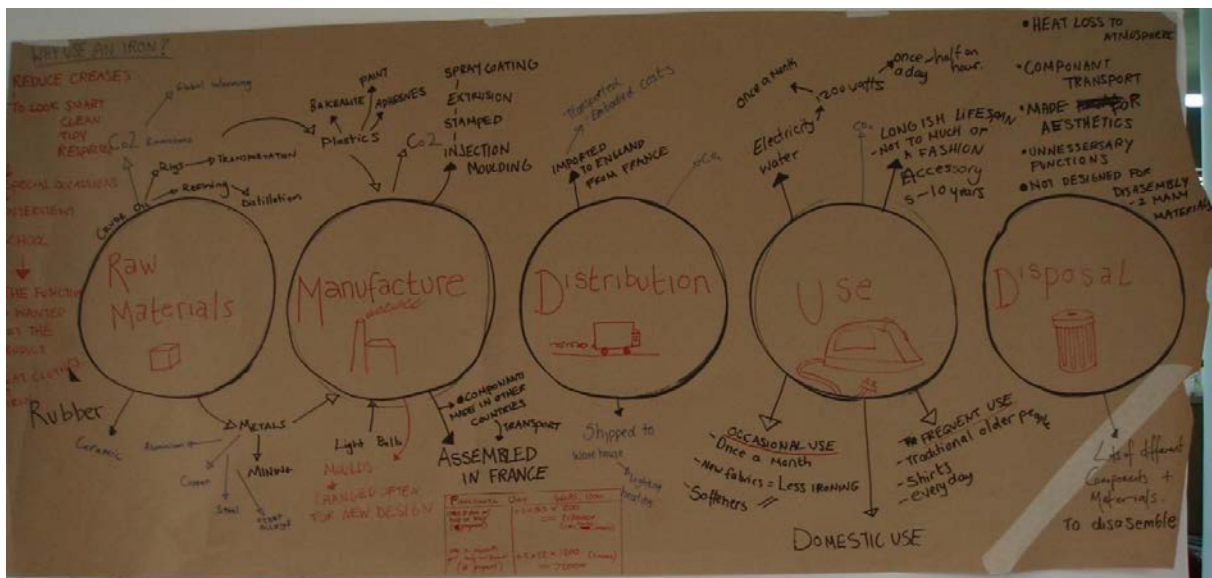 WHY USE AN IRON?
REDUCE CREASES
TO LOOK SMART
CLEAN
TIDY
SPECIAL OCCASIONS
INTERVIEWS
SCHOOL
THE FUNCTION
WANTED
THE
Global warming
Co2 Emissions
Rigs
TRANSPORTATION
Refining
Distillation
CRUDE OIL
Raw
Materials
Rubber
Ceramic
METALS
Aluminium
Copper
Steel
MINING
PAINT
BAKEALITE
ADHESIVES
Plastics
CO2
SPRAY COATING
EXTRUSION
STAMPED
INJECTION
MOULDING
Manufacture
Light Bulb
MOULDS
CHANGED OFTEN
FOR NEW DESIGN
MADE IN OTHER
COUNTRIES
TRANSPORT
ASSEMBLED
IN FRANCE
Transportation
Embodied costs
IMPORTED
TO ENGLAND
FROM FRANCE
Co2
Distribution
Shipped to
warehouse
Lighting
heating
once a month
1200 watts
once - half an
a day hour.
Electricity
water
CO2
LONGISH LIFESPAN
- NOT TO MUCH OF
A FASHION
Accessory
5-10 years
Use
OCCASIONAL USE
- Once a Month
- New fabrics = Less IRONING
- Softeners
FREQUENT USE
- Traditional older people
- Shirts
- everyday
DOMESTIC USE
• HEAT LOSS TO
ATMOSPHERE
• COMPONANT
TRANSPORT
• MADE FOR
AESTHETICS
• UNNESSERSARY
FUNCTIONS
• NOT DESIGNED FOR
DISASEMBLY
- 2 MANY
MATERIALS
Disposal
Lots of different
Components +
Materials.
To disasemble